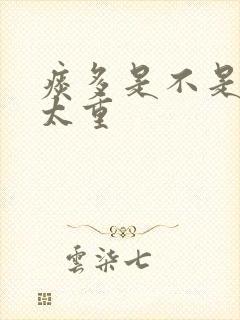 痰多是不是
太重
雲柒七